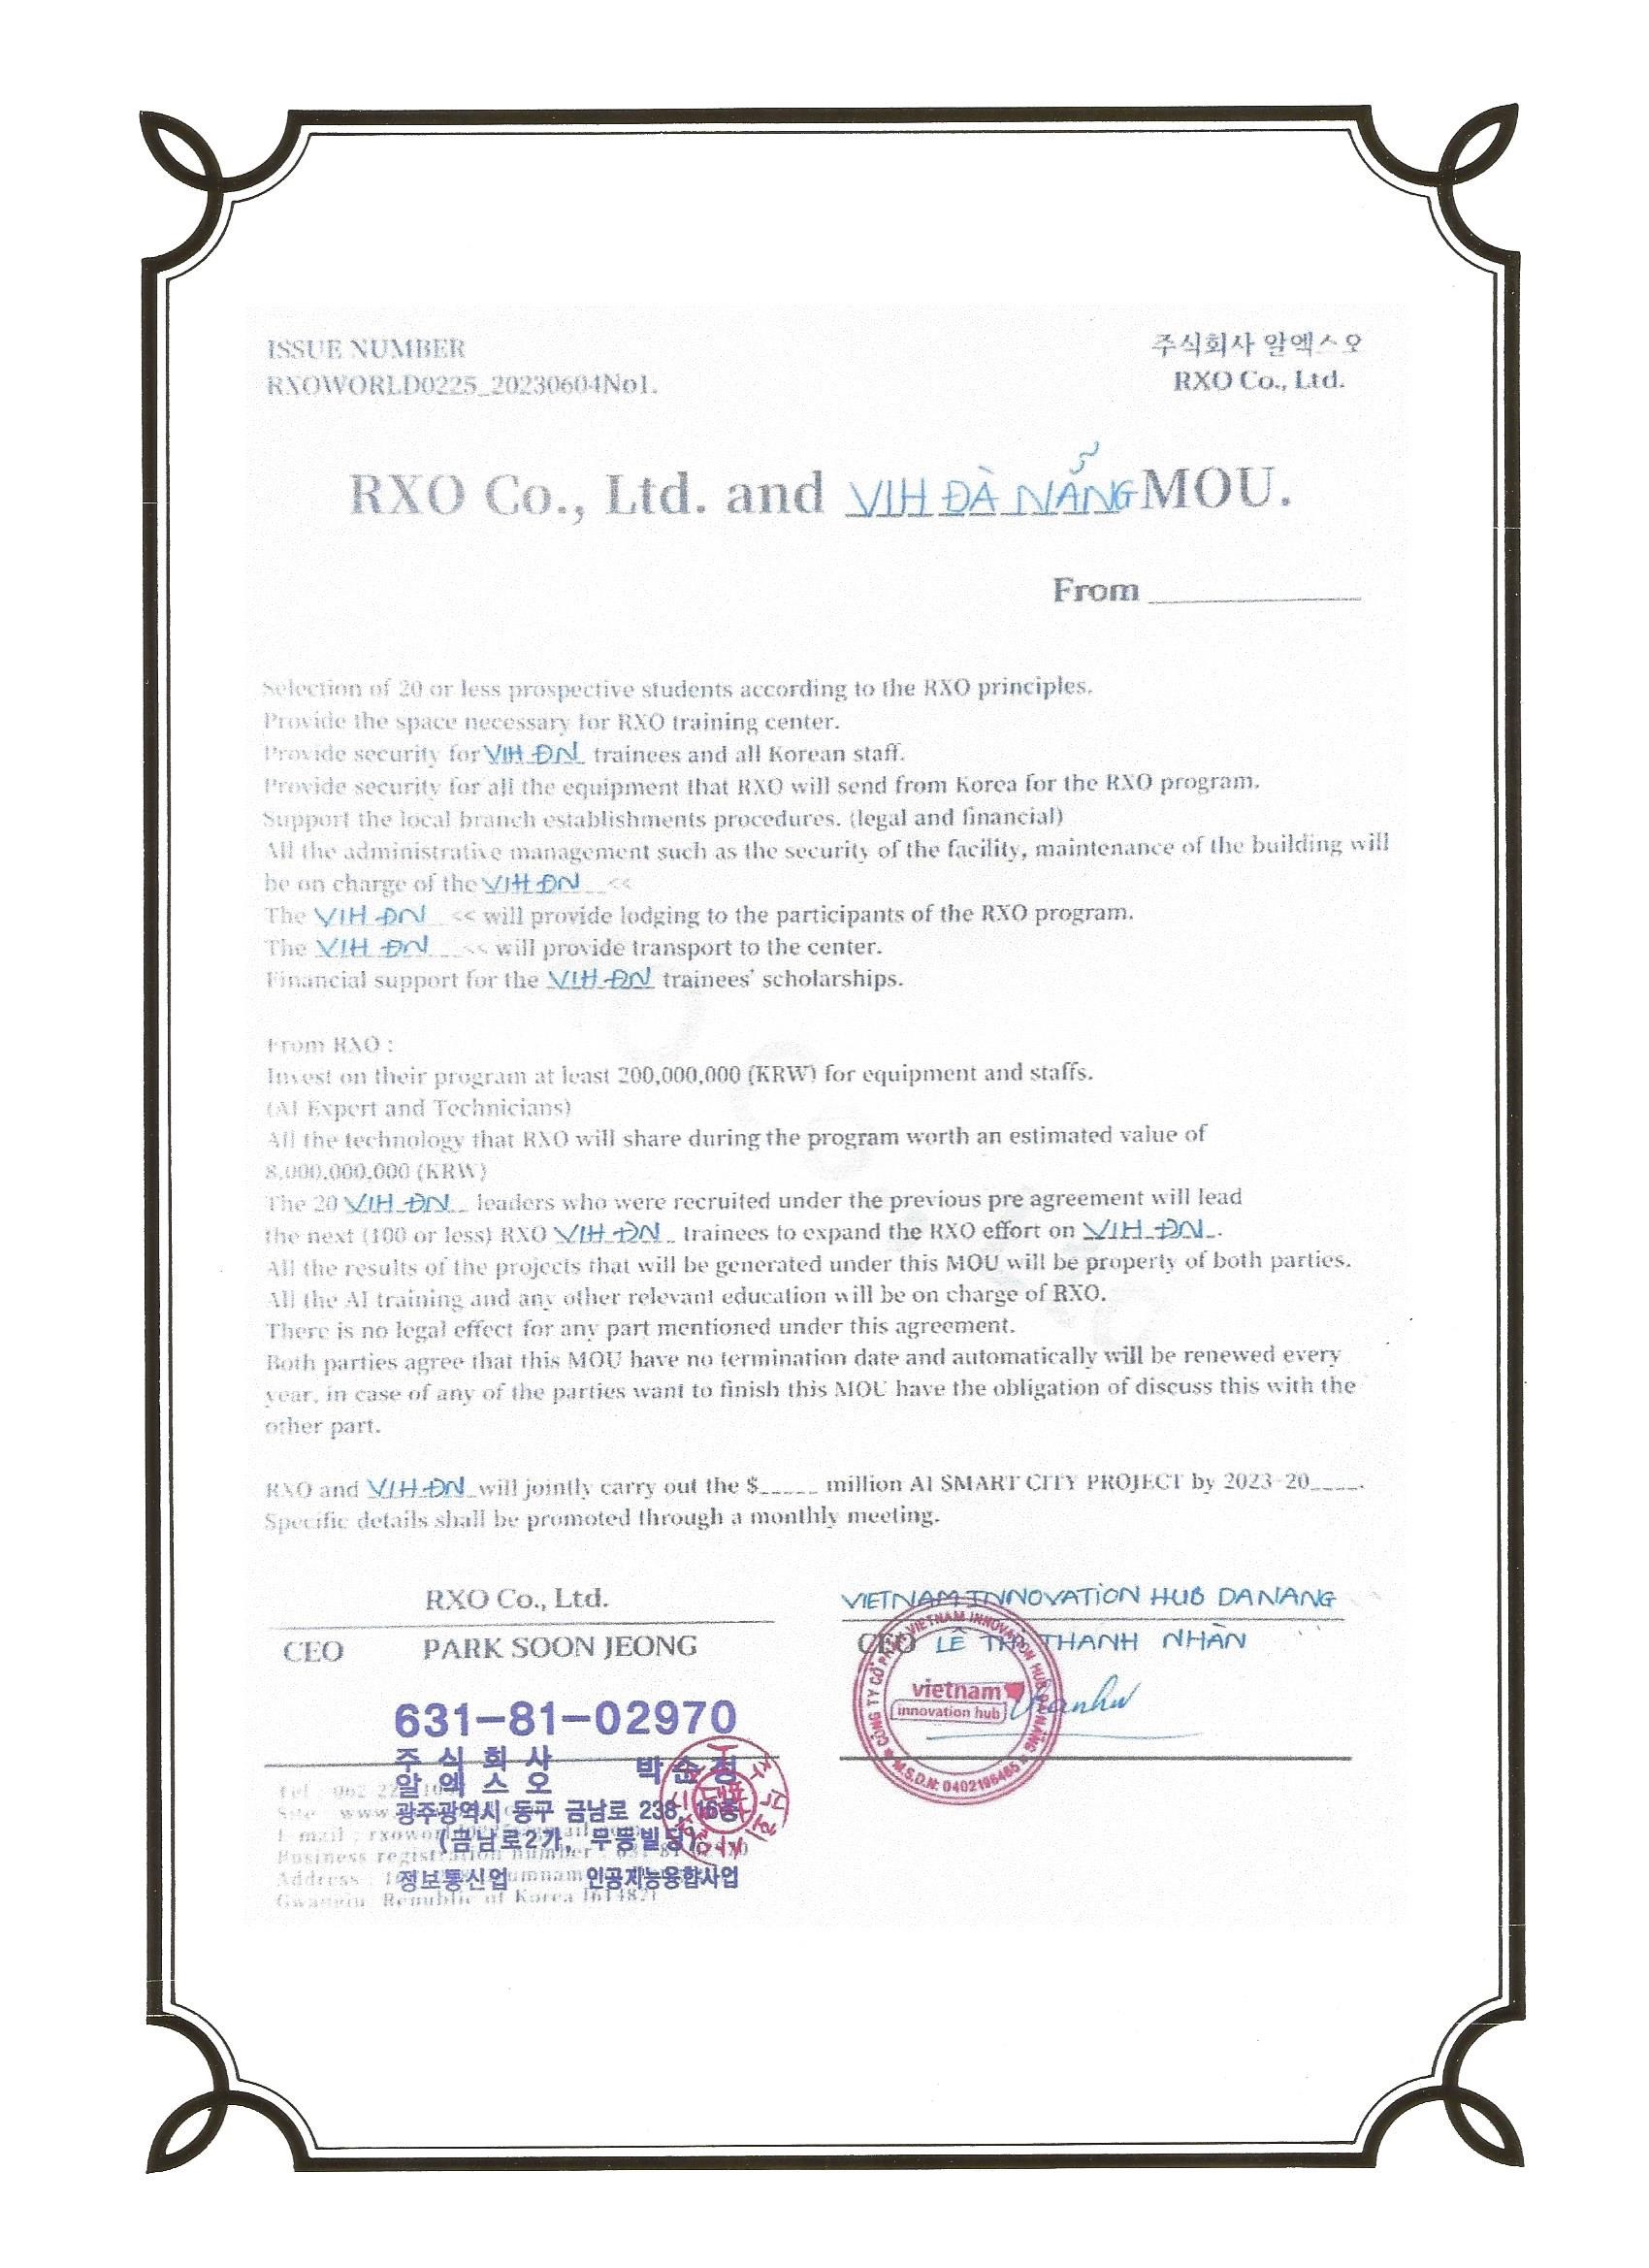 ISSUE NUMBER
RXOWORLD0225_20230604No1.
주식회사 알엑스오
RXO Co., Ltd.
RXO Co., Ltd. and VIH ĐÀ NẴNG MOU.
From
Selection of 20 or less prospective students according to the RXO principles.
Provide the space necessary for RXO training center.
Provide security for VIH ĐN trainees and all Korean staff.
Provide security for all the equipment that RXO will send from Korea for the RXO program.
Support the local branch establishments procedures. (legal and financial)
All the administrative management such as the security of the facility, maintenance of the building will
be on charge of the VIH ĐN <<
The VIH ĐN << will provide lodging to the participants of the RXO program.
The VIH ĐN << will provide transport to the center.
Financial support for the VIH ĐN trainees' scholarships.
From RXO :
Invest on their program at least 200,000,000 (KRW) for equipment and staffs.
(AI Expert and Technicians)
All the technology that RXO will share during the program worth an estimated value of
8,000,000,000 (KRW)
The 20 VIH ĐN leaders who were recruited under the previous pre agreement will lead
the next (100 or less) RXO VIH ĐN trainees to expand the RXO effort on VIH ĐN.
All the results of the projects that will be generated under this MOU will be property of both parties.
All the AI training and any other relevant education will be on charge of RXO.
There is no legal effect for any part mentioned under this agreement.
Both parties agree that this MOU have no termination date and automatically will be renewed every
year, in case of any of the parties want to finish this MOU have the obligation of discuss this with the
other part.
RXO and VIH ĐN will jointly carry out the $_____ million AI SMART CITY PROJECT by 2023-20____.
Specific details shall be promoted through a monthly meeting.
RXO Co., Ltd.
CEO PARK SOON JEONG
631-81-02970
주식회사
알엑스오 박순정
광주광역시 동구 금남로 238, 16층
(금남로2가, 무등빌딩)
정보통신업 인공지능융합사업
Tel : 062
Site : www.
E-mail :
Business registration number :
Address :
Gwangju, Republic of Korea [61482]
VIETNAM INNOVATION HUB DANANG
CEO LÊ THỊ THANH NHÀN
CÔNG TY CỔ PHẦN VIETNAM INNOVATION HUB ĐÀ NẴNG
vietnam
innovation hub
M.S.D.N: 0402196465